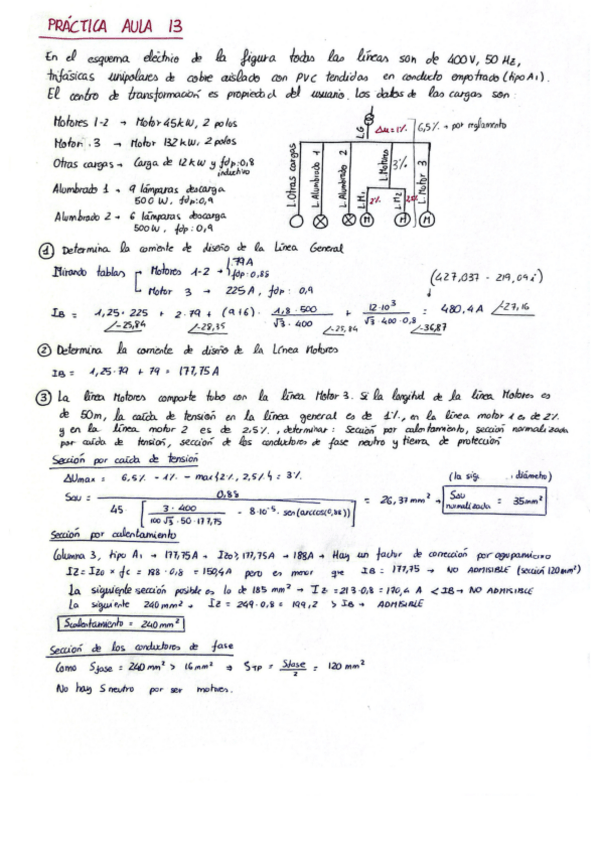 PRÁCTICA AULA 13
En el esquema eléctrico de la figura todas las líneas son de 400V, 50 Hz,
trifásicas unipolares de cobre aislado con PVC tendidas en conducto empotrado (tipo A1).
El centro de transformación es propiedad del usuario. Los datos de las cargas son:
Motores 1-2 → Motor 45kW, 2 polos
Motor 3 → Motor 132kW, 2 polos
Otras cargas → Carga de 12kW y fdp: 0,8
inductivo
Alumbrado 1 → 9 lámparas descarga
500W, fdp: 0,9
Alumbrado 2 → 6 lámparas descarga
500W, fdp: 0,9
L.G
Δu=1%
6,5% → por reglamento
L.Otras cargas
L.Alumbrado 1
L.Alumbrado 2
L.Motores
3%
L.M1
2%
L.M2
L.Motor 3
M M M
① Determina la corriente de diseño de la Línea General
Mirando tablas
Motores 1-2 → 79A
fdp: 0,85
Motor 3 → 225A, fdp: 0,9
(427,037 - 219,04i)
IB = 1,25·225 + 2·79 + (9+6)· 1,8·500 / √3·400 + 12·10³ / √3·400·0,8 = 480,4A ∠-27,16
∠-25,84 ∠-28,35 ∠-25,84 ∠-36,87
② Determina la corriente de diseño de la Línea Motores
IB = 1,25·79 + 79 = 177,75A
③ La línea Motores comparte tubo con la línea Motor 3. Si la longitud de la línea Motores es
de 50m, la caída de tensión en la línea general es de 1%, en la línea motor 1 es de 2%
y en la línea motor 2 es de 2,5%, determinar: Sección por calentamiento, sección normalizada
por caída de tensión, sección de los conductores de fase neutro y tierra de protección
Sección por caída de tensión
ΔUmax = 6,5% - 1% - max{2%, 2,5%} = 3%
(la sig. diámetro)
SΔU = 0,85 / 45 · [3·400 / 100√3·50·177,75 - 8·10⁻⁵·sen(arccos(0,85))] = 26,37mm² → SΔU normalizada = 35mm²
Sección por calentamiento
Columna 3, tipo A1 → 177,75A → Iz0 ≥ 177,75A → 188A → Hay un factor de corrección por agrupamiento
IZ = IZ0 × fc = 188·0,8 = 150,4A pero es menor que IB = 177,75 → NO ADMISIBLE (sección 120mm²)
La siguiente sección posible es la de 185mm² → IZ = 213·0,8 = 170,4A < IB → NO ADMISIBLE
La siguiente 240mm² → IZ = 249·0,8 = 199,2 > IB → ADMISIBLE
Scalentamiento = 240mm²
Sección de los conductores de fase
Como Sfase = 240mm² > 16mm² ⇒ STP = Sfase / 2 = 120mm²
No hay S neutro por ser motores.